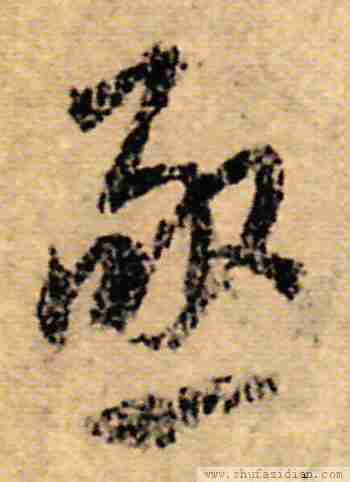 亟
www.shufazidian.com